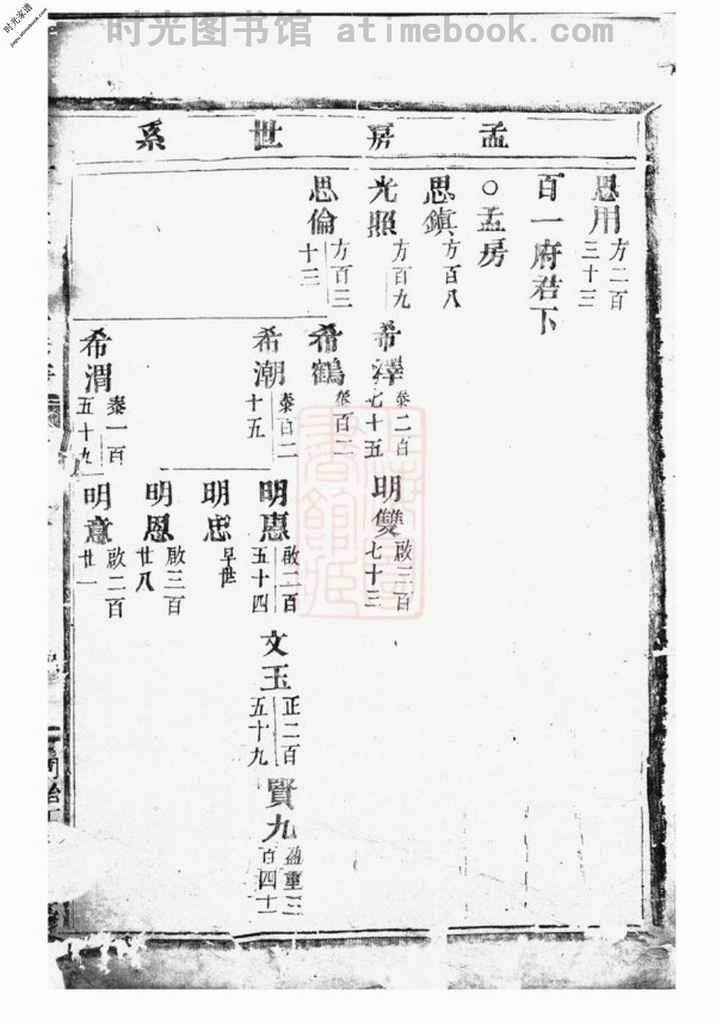 时光图书馆 atimebook.com
时光家谱
jiapu.atimebook.com
孟房世系
恩用 方二百三十三
百一府君下
○孟房
思鎮 方百八
光照 方百九
思倫 方百三十三
希澤 泰二百七十五
明雙 啟三百七十三
希鶴 泰百二
希潮 泰百二十五
明惠 啟二百五十四
文玉 正二百五十九
賢九 盈重三百四十一
明忠 早世
明恩 啟三百廿八
希渭 泰一百五十九
明意 啟二百廿一